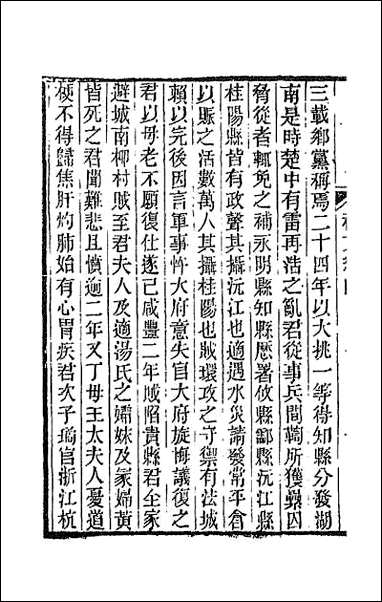 三載鄉黨稱焉二十四年以大挑一等得知縣分發湖
南是時楚中有雷再浩之亂君從事兵間鞫所獲纍囚
脅從者輒免之補永明縣知縣歷署攸縣酃縣沅江縣
桂陽縣皆有政聲其攝沅江也適遇水災請發常平倉
以賑之活數萬人其攝桂陽也賊環攻之守禦有法城
賴以完後因言軍事忤大府意失官大府旋悔議復之
君以毋老不願復仕遂已咸豐二年賊陷貴縣君全家
避城南柳村賊至君夫人及適湯氏之孀妹及冢婦黃
皆死之君聞難悲且憤逾二年又丁毋王太夫人憂道
梗不得歸焦肝灼肺始有心胃疾君次子瑞官浙江杭